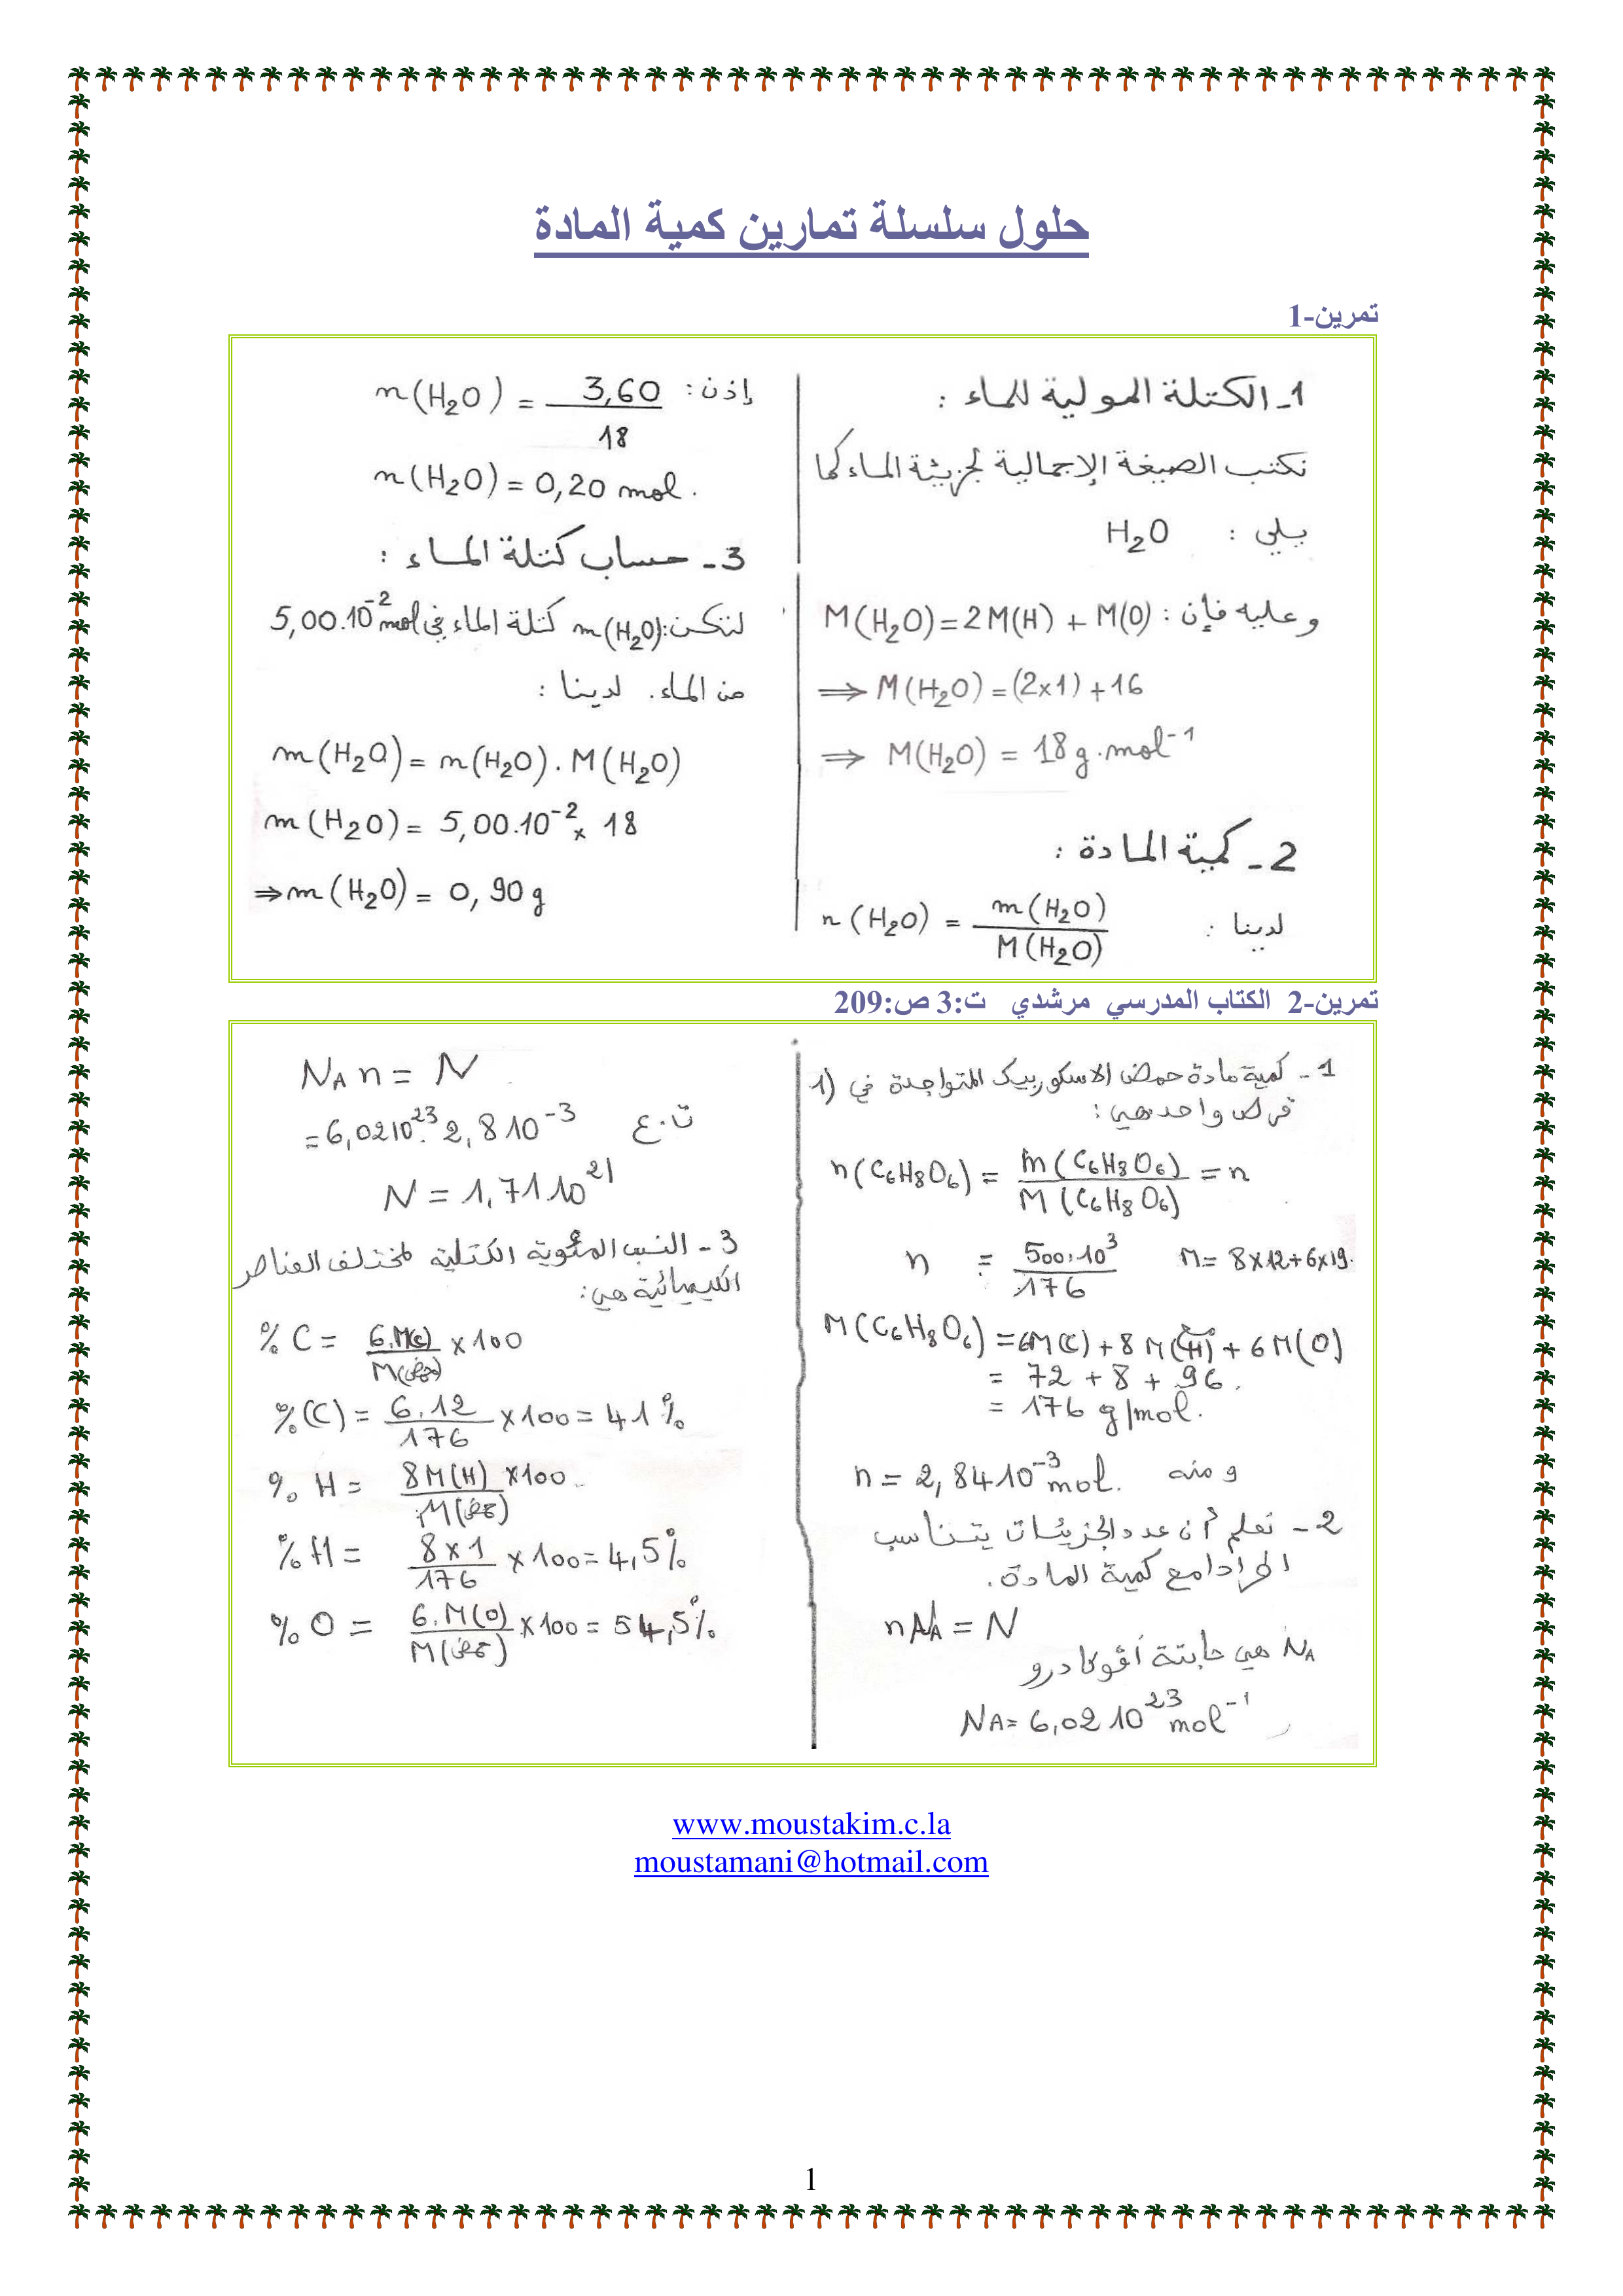 حلول سلسلة تمارين كمية المادة
تمرين-1
1- الكتلة المولية للماء :
نكتب الصيغة الإجمالية لجزيئة الماء كما
يلي : H₂O
وعليه فإن : M(H₂O) = 2M(H) + M(O)
⟹ M(H₂O) = (2x1) + 16
⟹ M(H₂O) = 18 g.mol⁻¹
2- كمية المادة :
لدينا : n(H₂O) = m(H₂O) / M(H₂O)
إذن : n(H₂O) = 3,60 / 18
n(H₂O) = 0,20 mol.
3- حساب كتلة الماء :
لتكن : m(H₂O) كتلة الماء في 5,00.10⁻² mol
من الماء. لدينا :
m(H₂O) = n(H₂O) . M(H₂O)
m(H₂O) = 5,00.10⁻² x 18
⇒ m(H₂O) = 0,90 g
تمرين-2 الكتاب المدرسي مرشدي ت:3 ص:209
1- كمية مادة حمض الاسكوربيك المتواجدة في (1
قرص واحد هي :
n(C₆H₈O₆) = m(C₆H₈O₆) / M(C₆H₈O₆) = n
n = 500.10³ / 176 M = 8x12+6x19.
M(C₆H₈O₆) = 6M(C) + 8M(H) + 6M(O)
= 72 + 8 + 96.
= 176 g/mol.
ومنه n = 2,84 10⁻³ mol.
2- نعلم أن عدد الجزيئات يتناسب
اطرادا مع كمية المادة.
nNA = N
NA هي ثابتة أفوكادرو
NA = 6,02 10²³ mol⁻¹
NA n = N
ت.ع = 6,02 10²³. 2,8 10⁻³
N = 1,71.10²¹
3- النسب المئوية الكتلية لمختلف العناصر
الكيميائية هي :
% C = 6.M(C) / M(حمض) x 100
%(C) = 6.12 / 176 x 100 = 41 %
% H = 8M(H) / M(حمض) x 100
% H = 8 x 1 / 176 x 100 = 4,5 %
% O = 6.M(O) / M(حمض) x 100 = 54,5 %
www.moustakim.c.la
moustamani@hotmail.com
1